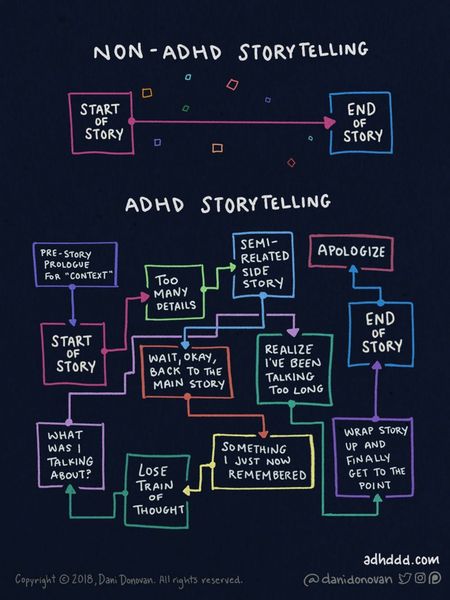 NON-ADHD STORYTELLING
START
OF
STORY
END
OF
STORY
ADHD STORYTELLING
PRE-STORY
PROLOGUE
FOR "CONTEXT"
START
OF
STORY
TOO
MANY
DETAILS
SEMI-
RELATED
SIDE
STORY
WAIT, OKAY,
BACK TO THE
MAIN STORY
SOMETHING
I JUST NOW
REMEMBERED
LOSE
TRAIN
OF
THOUGHT
WHAT
WAS I
TALKING
ABOUT?
REALIZE
I'VE BEEN
TALKING
TOO LONG
WRAP STORY
UP AND
FINALLY
GET TO THE
POINT
END
OF
STORY
APOLOGIZE
adhddd.com
Copyright © 2018, Dani Donovan. All rights reserved.
@danidonovan